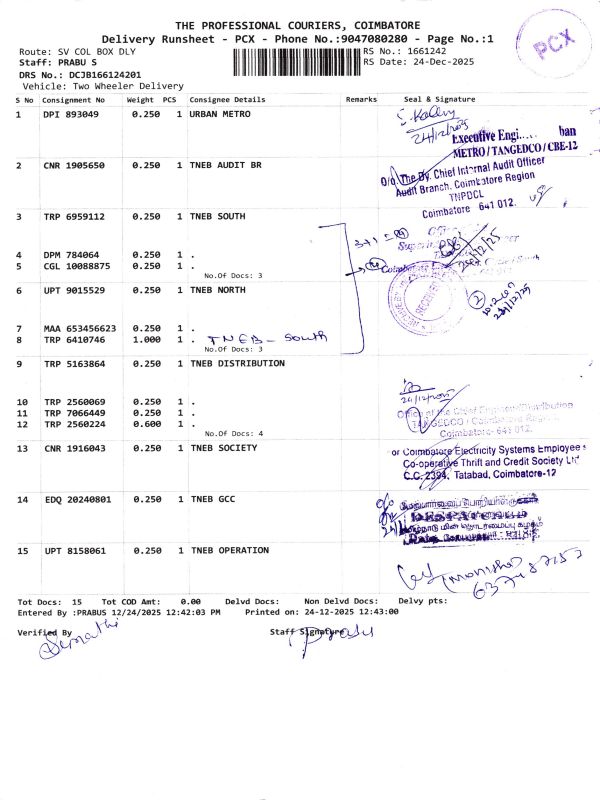 THE PROFESSIONAL COURIERS, COIMBATORE
Delivery Runsheet - PCX - Phone No.:9047080280 - Page No.:1
PCX
Route: SV COL BOX DLY
RS No.: 1661242
Staff: PRABU S
RS Date: 24-Dec-2025
DRS No.: DCJB166124201
Vehicle: Two Wheeler Delivery
S No Consignment No Weight PCS Consignee Details Remarks Seal & Signature
1 DPI 893049 0.250 1 URBAN METRO
24/12/2025
Executive Engi..... ban
METRO/TANGEDCO/CBE-12
2 CNR 1905650 0.250 1 TNEB AUDIT BR
O/o The Dy. Chief Internal Audit Officer
Audit Branch, Coimbatore Region
TNPDCL
Coimbatore 641 012.
3 TRP 6959112 0.250 1 TNEB SOUTH
3+1=4
4 DPM 784064 0.250 1 .
5 CGL 10088875 0.250 1 .
No.Of Docs: 3
RECEIVED
6 UPT 9015529 0.250 1 TNEB NORTH
2
24/12/25
7 MAA 653456623 0.250 1 .
8 TRP 6410746 1.000 1 . TNEB - SOUTH
No.Of Docs: 3
9 TRP 5163864 0.250 1 TNEB DISTRIBUTION
24/12/2025
10 TRP 2560069 0.250 1 .
11 TRP 7066449 0.250 1 .
12 TRP 2560224 0.600 1 .
No.Of Docs: 4
Office of the Chief Engineer/Distribution
TANGEDCO / Coimbatore Region
Coimbatore- 641 012.
13 CNR 1916043 0.250 1 TNEB SOCIETY
or Coimbatore Electricity Systems Employee s
Co-operative Thrift and Credit Society Ltd
C.C. 2394, Tatabad, Coimbatore-12
14 EDQ 20240801 0.250 1 TNEB GCC
DESPATCHED
15 UPT 8158061 0.250 1 TNEB OPERATION
Tot Docs: 15 Tot COD Amt: 0.00 Delvd Docs: Non Delvd Docs: Delvy pts:
Entered By :PRABUS 12/24/2025 12:42:03 PM Printed on: 24-12-2025 12:43:00
Verified By
Staff Signature
Prabu